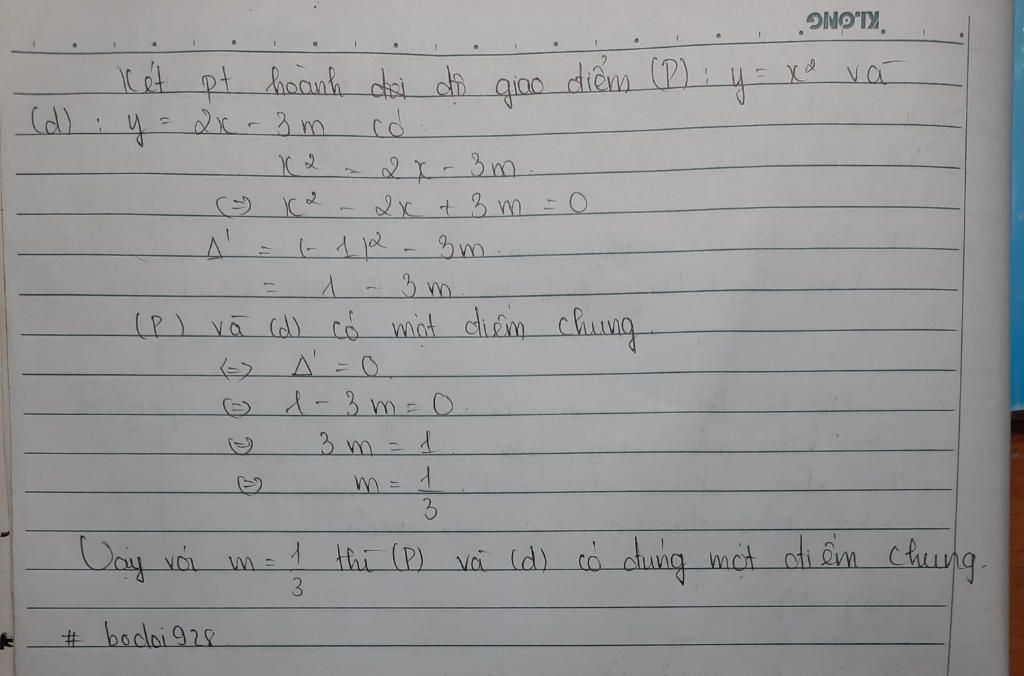 KLONG
Xét pt hoành độ giao điểm (P) : y = x² và
(d) : y = 2x - 3m có
x² = 2x - 3m
(=) x² - 2x + 3m = 0
Δ' = (-1)² - 3m
= 1 - 3m
(P) và (d) có một điểm chung
(=) Δ' = 0
(=) 1 - 3m = 0
(=) 3m = 1
(=) m = 1/3
Vậy với m = 1/3 thì (P) và (d) có đúng một điểm chung.
# bodoi928